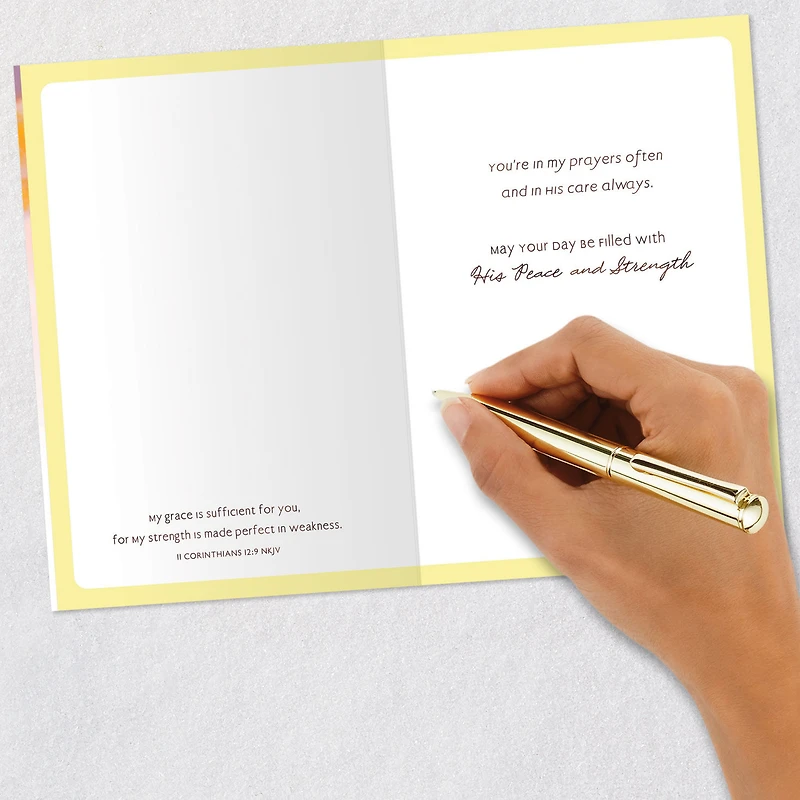 My grace is sufficient for you,
for My strength is made perfect in weakness.
II CORINTHIANS 12:9 NKJV
You're in my prayers often
and in His care always.
May your day be filled with
His Peace and Strength